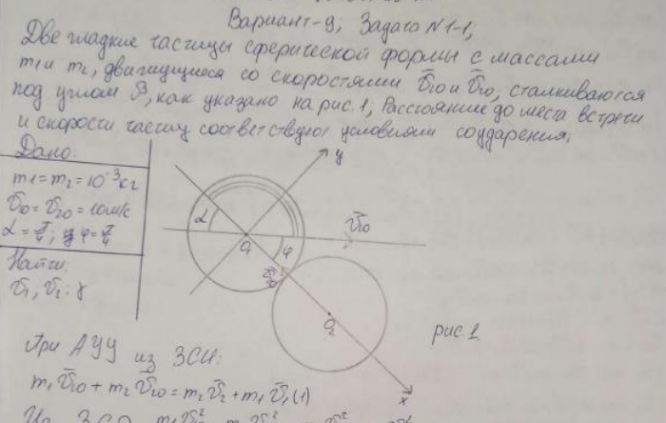 Вариант-9; Задача №1-1,
Две гладкие частицы сферической формы с массами
m₁ и m₂, движущиеся со скоростями v̄₁₀ и v̄₂₀, сталкиваются
под углом β, как указано на рис. 1, Расстояние до места встречи
и скорости частиц соответствуют условиям соударения,
Дано:
m₁ = m₂ = 10⁻³ кг
v̄₁₀ = v̄₂₀ = 10 м/с
α = π/4, φ = π/4
Найти:
v̄₁, v̄₂, γ
y
α
v̄₁₀
O₁
φ
O₂
рис. 1
x
При АУУ из ЗСИ:
m₁v̄₁₀ + m₂v̄₂₀ = m₂v̄₂ + m₁v̄₁ (1)